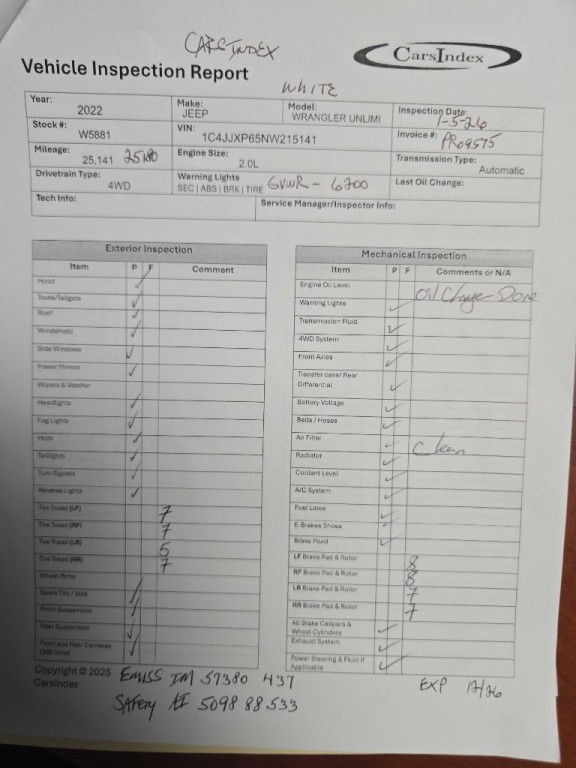 CARS INDEX
CarsIndex
Vehicle Inspection Report
WHITE
Year: 2022 Make: JEEP Model: WRANGLER UNLIMI Inspection Date: 1-5-26
Stock #: W5881 VIN: 1C4JJXP65NW215141 Invoice #: PR09575
Mileage: 25,141 25180 Engine Size: 2.0L Transmission Type: Automatic
Drivetrain Type: 4WD Warning Lights SEC | ABS | BRK | TIRE GVWR - 6200 Last Oil Change:
Tech Info: Service Manager/Inspector Info:
Exterior Inspection
Item P F Comment
Hood ✓
Trunk/Tailgate ✓
Roof ✓
Windshield ✓
Side Windows ✓
Power Mirrors ✓
Wipers & Washer
Headlights ✓
Fog Lights ✓
Horn ✓
Taillights ✓
Turn Signals ✓
Reverse Lights ✓
Tire Tread (LF) 7
Tire Tread (RF) 7
Tire Tread (LR) 5
Tire Tread (RR) 7
Wheel Rims
Spare Tire / Jack ✓
Front Suspension ✓
Rear Suspension ✓
Front and Rear Cameras (360 View) ✓
Mechanical Inspection
Item P F Comments or N/A
Engine Oil Level Oil Change Done
Warning Lights ✓
Transmission Fluid ✓
4WD System ✓
Front Axles ✓
Transfer case/ Rear Differential ✓
Battery Voltage ✓
Belts / Hoses ✓
Air Filter ✓ Clean
Radiator ✓
Coolant Level ✓
A/C System ✓
Fuel Lines ✓
E-Brakes Shoes ✓
Brake Fluid ✓
LF Brake Pad & Rotor 8
RF Brake Pad & Rotor 8
LR Brake Pad & Rotor 7
RR Brake Pad & Rotor 7
All Brake Calipers & Wheel Cylinders ✓
Exhaust System ✓
Power Steering & Fluid if Applicable ✓
Copyright © 2025 CarsIndex
EMISS IM 57380 437
EXP 12/26
SAFETY AI 5098 88 533